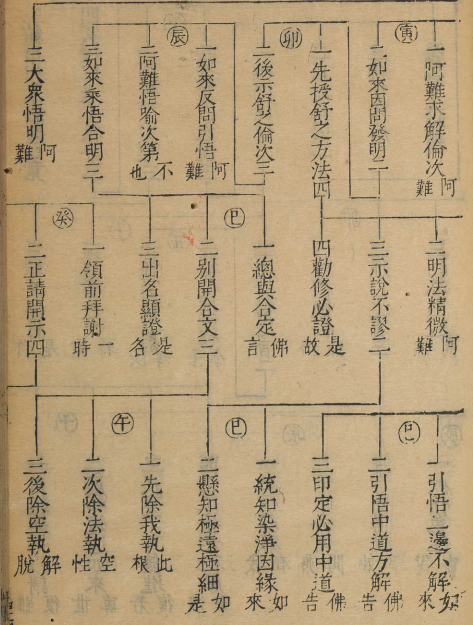 寅
一阿難求解倫次 阿難
二如來因問發明二
卯
一先授舒之方法四
二後示舒之倫次三
辰
一如來反問引悟 阿難
二阿難悟喻次第 不也
三如來乘悟合明三
三大眾悟明 阿難
二明法精微 阿難
三示說不謬二
四勸修必證 是故
巳
一總與合定 佛言
二別開合文三
三出名顯證 是名
癸
一領前拜謝 一時
二正請開示四
巳
一引悟二邊不解 如來
二引悟中道方解 佛告
三印定必用中道 佛告
巳
一統知染淨因緣 如來
二懸知極遠極細 如是
午
一先除我執 此根
二次除法執 空性
三後除空執 解脫